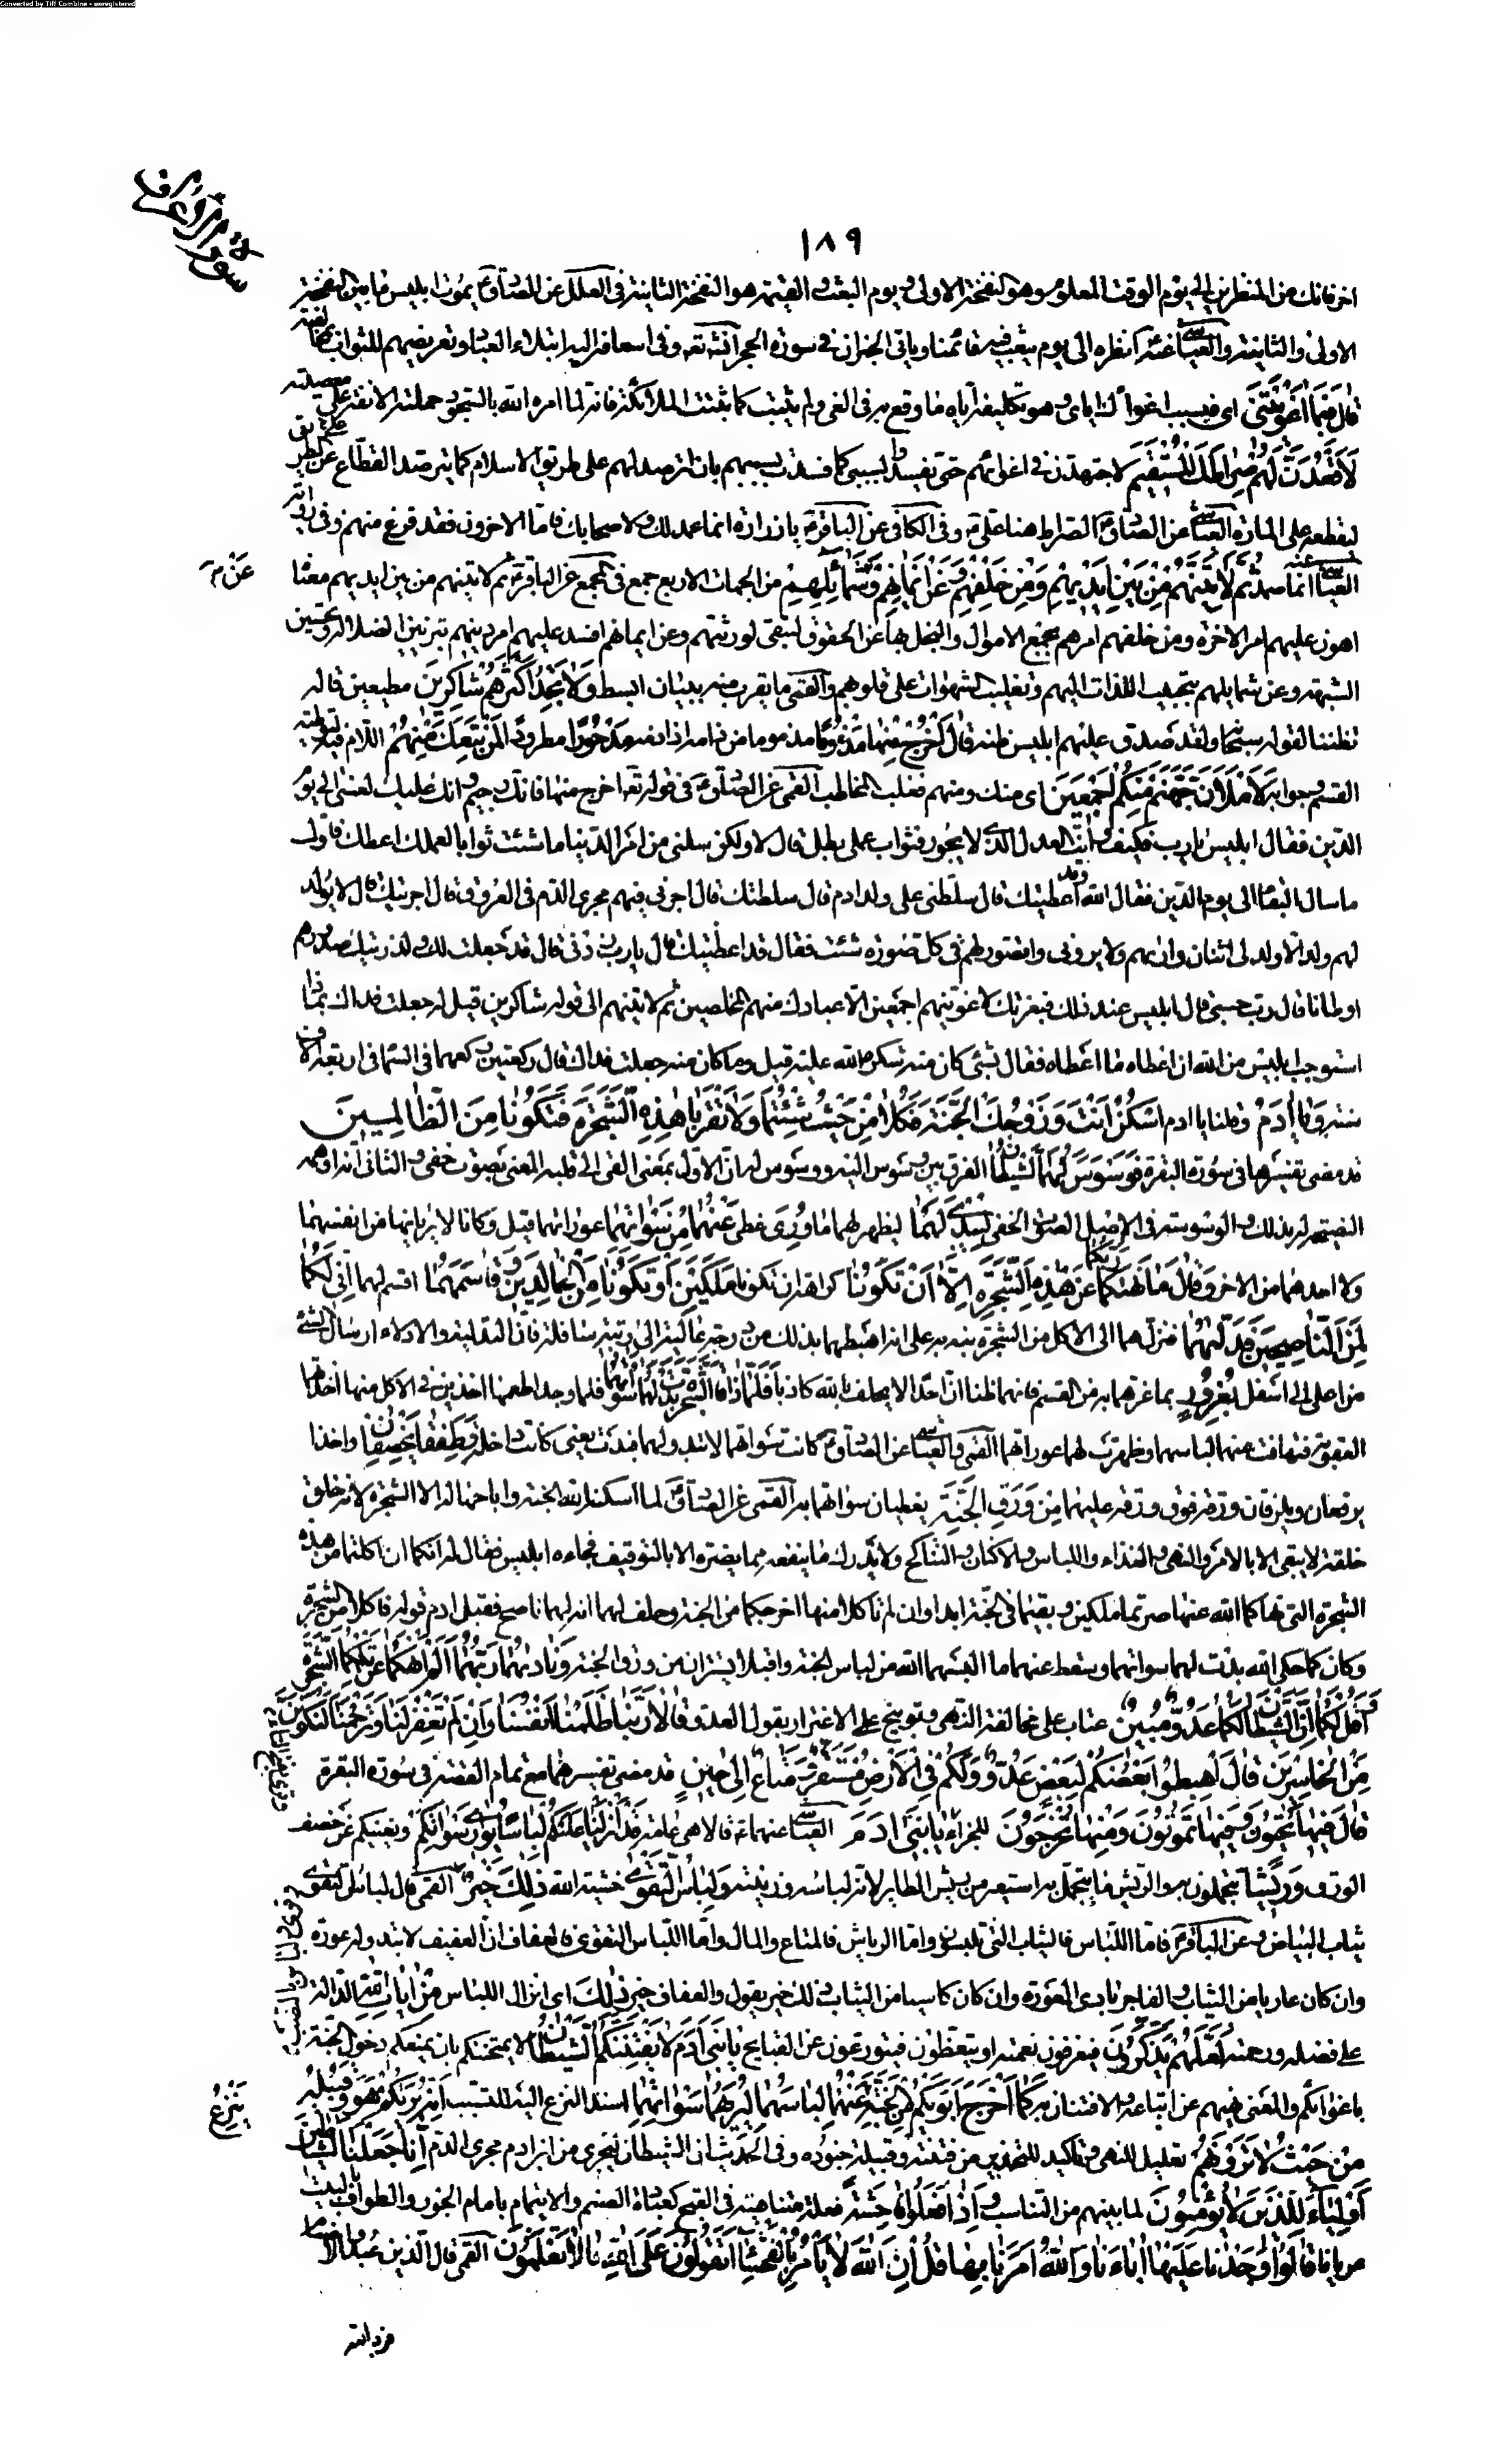 Converted by Tiff Combine - unregistered
سورة الاعراف
١٨٩
اخر فانك من المنظرين الى يوم الوقت المعلوم وهو النفخة الاولى ويوم البعث والقيمة هو النفخة الثانية في العلل عن الصادق ع يموت ابليس ما بين النفخة
الاولى والثانية والعياشي عنه ع انظره الى يوم يبعث فيه قائمنا وياتي الخبران في سورة الحجر انشاء الله تعه وفي اسعافه اليه ابتلاء العباد وتعريضهم للثواب بمخالفته
قال فبما اغويتني اي فبسبب اغوائك اياي وهو تكليفه اياه ما وقع به في الغي ولم يثبت كما ثبتت الملائكة فانه لما امره الله بالسجود حملته الانفة على معصيته
لاقعدن لهم صراطك المستقيم لاجتهدن في اغوائهم حتى يفسدوا بسببي كما فسدت بسببهم بان اترصد لهم على طريق الاسلام كما يترصد القطاع على الطريق
ليقطعه على المارة العياشي عن الصادق ع الصراط هنا علي ع وفي الكافي عن الباقر ع يا زرارة انما عمد لك ولاصحابك فاما الاخرون فقد فرغ منهم وفي رواية
العياشي عنه انما صمد ثم لاتينهم من بين ايديهم ومن خلفهم وعن ايمانهم وعن شمائلهم من الجهات الاربع جمع في المجمع عن الباقر ع ثم لاتينهم من بين ايديهم معناه
عن م
اهون عليهم امر الاخرة ومن خلفهم امرهم بجمع الاموال والبخل بها عن الحقوق لتبقى لورثتهم وعن ايمانهم افسد عليهم امر دينهم بتزيين الضلالة وتحسين
الشبهة وعن شمايلهم بتحبيب اللذات اليهم وتغليب الشهوات على قلوبهم والقمي ما يقرب منه ببيان ابسط ولا تجد اكثرهم شاكرين مطيعين قاله
تظننا لقوله سبحانه ولقد صدق عليهم ابليس ظنه قال اخرج منها مذؤما مذموما من ذامه اذا ذمه مدحورا مطرودا لمن تبعك منهم اللام فيه لتوطئة
القسم وجوابه لاملأن جهنم منكم اجمعين اي منك ومنهم فغلب المخاطب القمي عن الصادق ع في قوله تعه اخرج منها فانك رجيم وان عليك لعنتي الى يوم
الدين فقال ابليس يا رب فكيف وانت العدل الذي لا يجور فثواب عملي بطل قال لا ولكن سلني من امر الدنيا ما شئت ثوابا لعملك اعطك فاول
ما سال البقاء الى يوم الدين فقال الله وقد اعطيتك قال سلطني على ولد ادم قال سلطتك قال اجرني فيهم مجرى الدم في العروق قال اجريتك قال لا يولد
لهم ولد الا ولد لي اثنان واراهم ولا يروني واتصور لهم في كل صورة شئت فقال قد اعطيتك قال يا رب زدني قال قد جعلت لك ولذريتك صدورهم
اوطانا قال رب حسبي قال ابليس عند ذلك فبعزتك لاغوينهم اجمعين الا عبادك منهم المخلصين ثم لاتينهم الى قوله شاكرين قيل له جعلت فداك بماذا
استوجب ابليس من الله ان اعطاه ما اعطاه فقال بشئ كان منه شكره الله عليه قيل وما كان منه جعلت فداك قال ركعتين ركعهما في السماء في اربعة الاف
سنة ويا ادم وقلنا يا ادم اسكن انت وزوجك الجنة فكلا من حيث شئتما ولا تقربا هذه الشجرة فتكونا من الظالمين
قد مضى تفسيرها في سورة البقرة فوسوس لهما الشيطان الفرق بين وسوس اليه ووسوس له ان الاول بمعنى القى الى قلبه المعنى بصوت خفي والثاني انه اوهمه
النصيحة له بذلك والوسوسة في الاصل الصوت الخفي ليبدي لهما ليظهر لهما ما وري غطى عنهما من سواتهما عوراتهما قيل وكانا لا يريانها من انفسهما
ولا احدهما من الاخر وقال ما نهاكما ربكما عن هذه الشجرة الا ان تكونا كراهة ان تكونا ملكين او تكونا من الخالدين وقاسمهما اقسم لهما اني لكما
لمن الناصحين فدلاهما فنزلهما الى الاكل من الشجرة نبه به على انه اهبطهما بذلك من درجة عالية الى رتبة سافلة فان التدلية والادلاء ارسال الشئ
من اعلى الى اسفل بغرور بما غرهما به من القسم فانهما ظنا ان احدا لا يحلف بالله كاذبا فلما ذاقا الشجرة بدت لهما سواتهما فلما وجدا طعمها اخذين في الاكل منها اخذتهما
العقوبة فتهافت عنهما لباسهما وظهرت لهما عوراتهما القمي والعياشي عن الصادق ع كانت سواتهما لا تبدو لهما فبدت يعني كانت داخلة وطفقا يخصفان واخذا
يرقعان ويلزقان ورقة فوق ورقة عليهما من ورق الجنة يغطيان سواتهما به القمي عن الصادق ع لما اسكنه الله الجنة واباحها له الا الشجرة لانه خلق
خلقة لا يبقى الا بالامر والنهي والغذاء واللباس والاكنان والتناكح ولا يدرك ما ينفعه مما يضره الا بالتوقيف فجاءه ابليس فقال له انكما ان اكلتما من هذه
الشجرة التي نهاكما الله عنها صرتما ملكين وبقيتما في الجنة ابدا وان لم تاكلا منها اخرجكما من الجنة وحلف لهما انه لهما ناصح فقبل ادم قوله فاكلا من الشجرة
وكان كما حكى الله بدت لهما سواتهما وسقط عنهما ما البسهما الله من لباس الجنة واقبلا يستتران من ورق الجنة وناداهما ربهما الم انهكما عن تلكما الشجرة
واقل لكما ان الشيطان لكما عدو مبين عتاب على مخالفة النهي وتوبيخ على الاغترار بقول العدو قالا ربنا ظلمنا انفسنا وان لم تغفر لنا وترحمنا لنكونن
من الخاسرين قال اهبطوا بعضكم لبعض عدو ولكم في الارض مستقر ومتاع الى حين قد مضى تفسيرهما مع تمام القصة في سورة البقرة
قال فيها تحيون وفيها تموتون ومنها تخرجون للجزاء يا بني ادم العياشي عنهما ع قالا هي عامة قد انزلنا عليكم لباسا يواري سواتكم ويغنيكم عن خصف
الورق وريشا تتجملون به والريش ما يتجمل به استعير من ريش الطاير لانه لباسه وزينته ولباس التقوى خشية الله ذلك خير القمي قال لباس التقوى
ثياب البياض وعن الباقر ع فاما اللباس فالثياب التي تلبسون واما الرياش فالمتاع والمال واما اللباس التقوى فالعفاف ان العفيف لا تبدو له عورة
وان كان عاريا من الثياب والفاجر بادي العورة وان كان كاسيا من الثياب ذلك خير يقول والعفاف خير ذلك اي انزال اللباس من ايات الله الدالة
على فضله ورحمته لعلهم يذكرون فيعرفون نعمته او يتعظون فيتورعون عن القبايح يا بني ادم لا يفتننكم الشيطان لا يمتحننكم بان يمنعكم دخول الجنة
باغوائكم والمعنى نهيهم عن اتباعه والافتتان به كما اخرج ابويكم من الجنة ينزع عنهما لباسهما ليريهما سواتهما اسند النزع اليه للتسبب انه يريكم هو وقبيله
ينزع
من حيث لا ترونهم تعليل للنهي وتاكيد للتحذير من فتنته وقبيله جنوده وفي الحديث ان الشيطان ليجري من ابن ادم مجرى الدم انا جعلنا الشياطين
اولياء للذين لا يؤمنون لما بينهم من التناسب واذا فعلوا فاحشة فعلة متناهية في القبح كعبادة الصنم والايتمام بامام الجور والطواف بالبيت
عريانا قالوا وجدنا عليها اباءنا والله امرنا بها قل ان الله لا يأمر بالفحشاء اتقولون على الله ما لا تعلمون القمي قال الذين عبدوا الاصنام
فرد الله